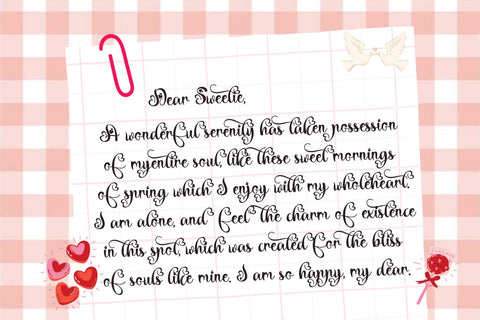 Dear Sweetie,
A wonderful serenity has taken possession
of myentire soul, like these sweet mornings
of spring which I enjoy with my wholeheart.
I am alone, and feel the charm of existence
in this spot, which was created for the bliss
of souls like mine. I am so happy, my dear.